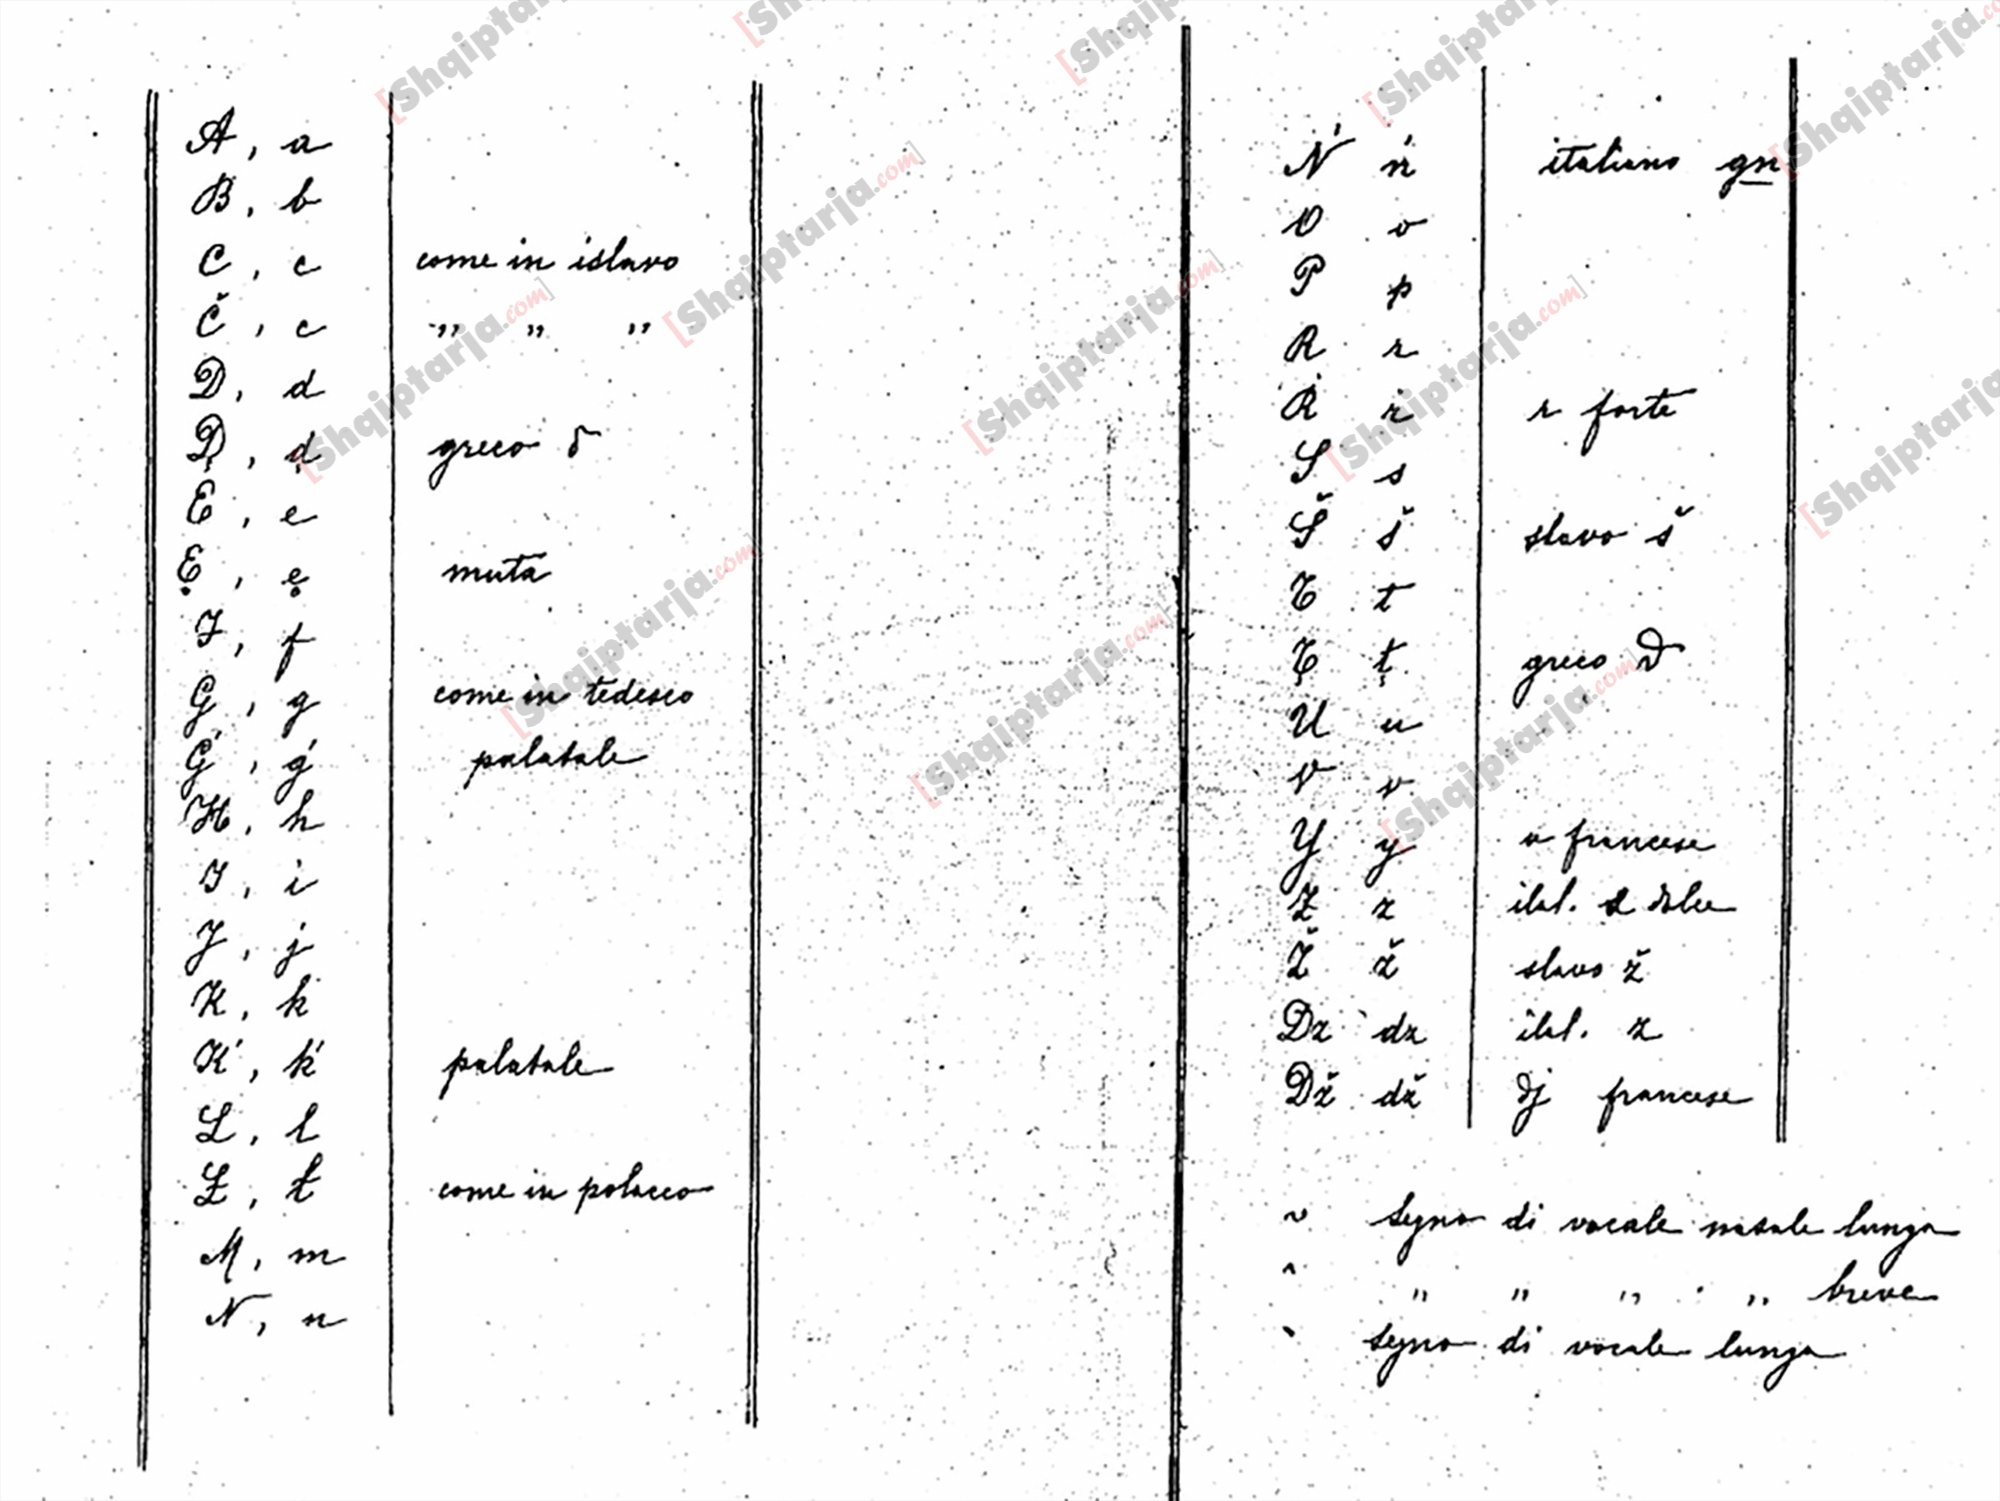 A, a
B, b
C, c come in islavo
Č, c " " "
D, d
D̩, d̩ greco δ
E, e
Ẹ, e̥ muta
F, f
G, g come in tedesco
Ǵ, ǵ palatale
H, h
I, i
J, j
K, k
Ḱ, ḱ palatale
L, l
Ł, ł come in polacco
M, m
N, n
Ń ń italiano gn
O o
P p
R r
Ṙ ṙ r forte
S s
Š š slavo š
T t
Ț ț greco ϑ
U u
V v
Y y u francese
Z z ital. s dolce
Ž ž slavo ž
Dz dz ital. z
Dž dž dj francese
~ segno di vocale nasale lunga
^ " " " " breve
` segno di vocale lunga
[Shqiptarja.com]